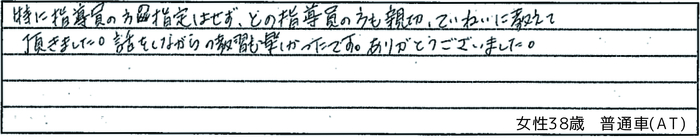 特に指導員の方の指定はせず、どの指導員の方も親切、ていねいに教えて
頂きました。話をしながらの教習も楽しかったです。ありがとうございました。
女性38歳 普通車(AT)